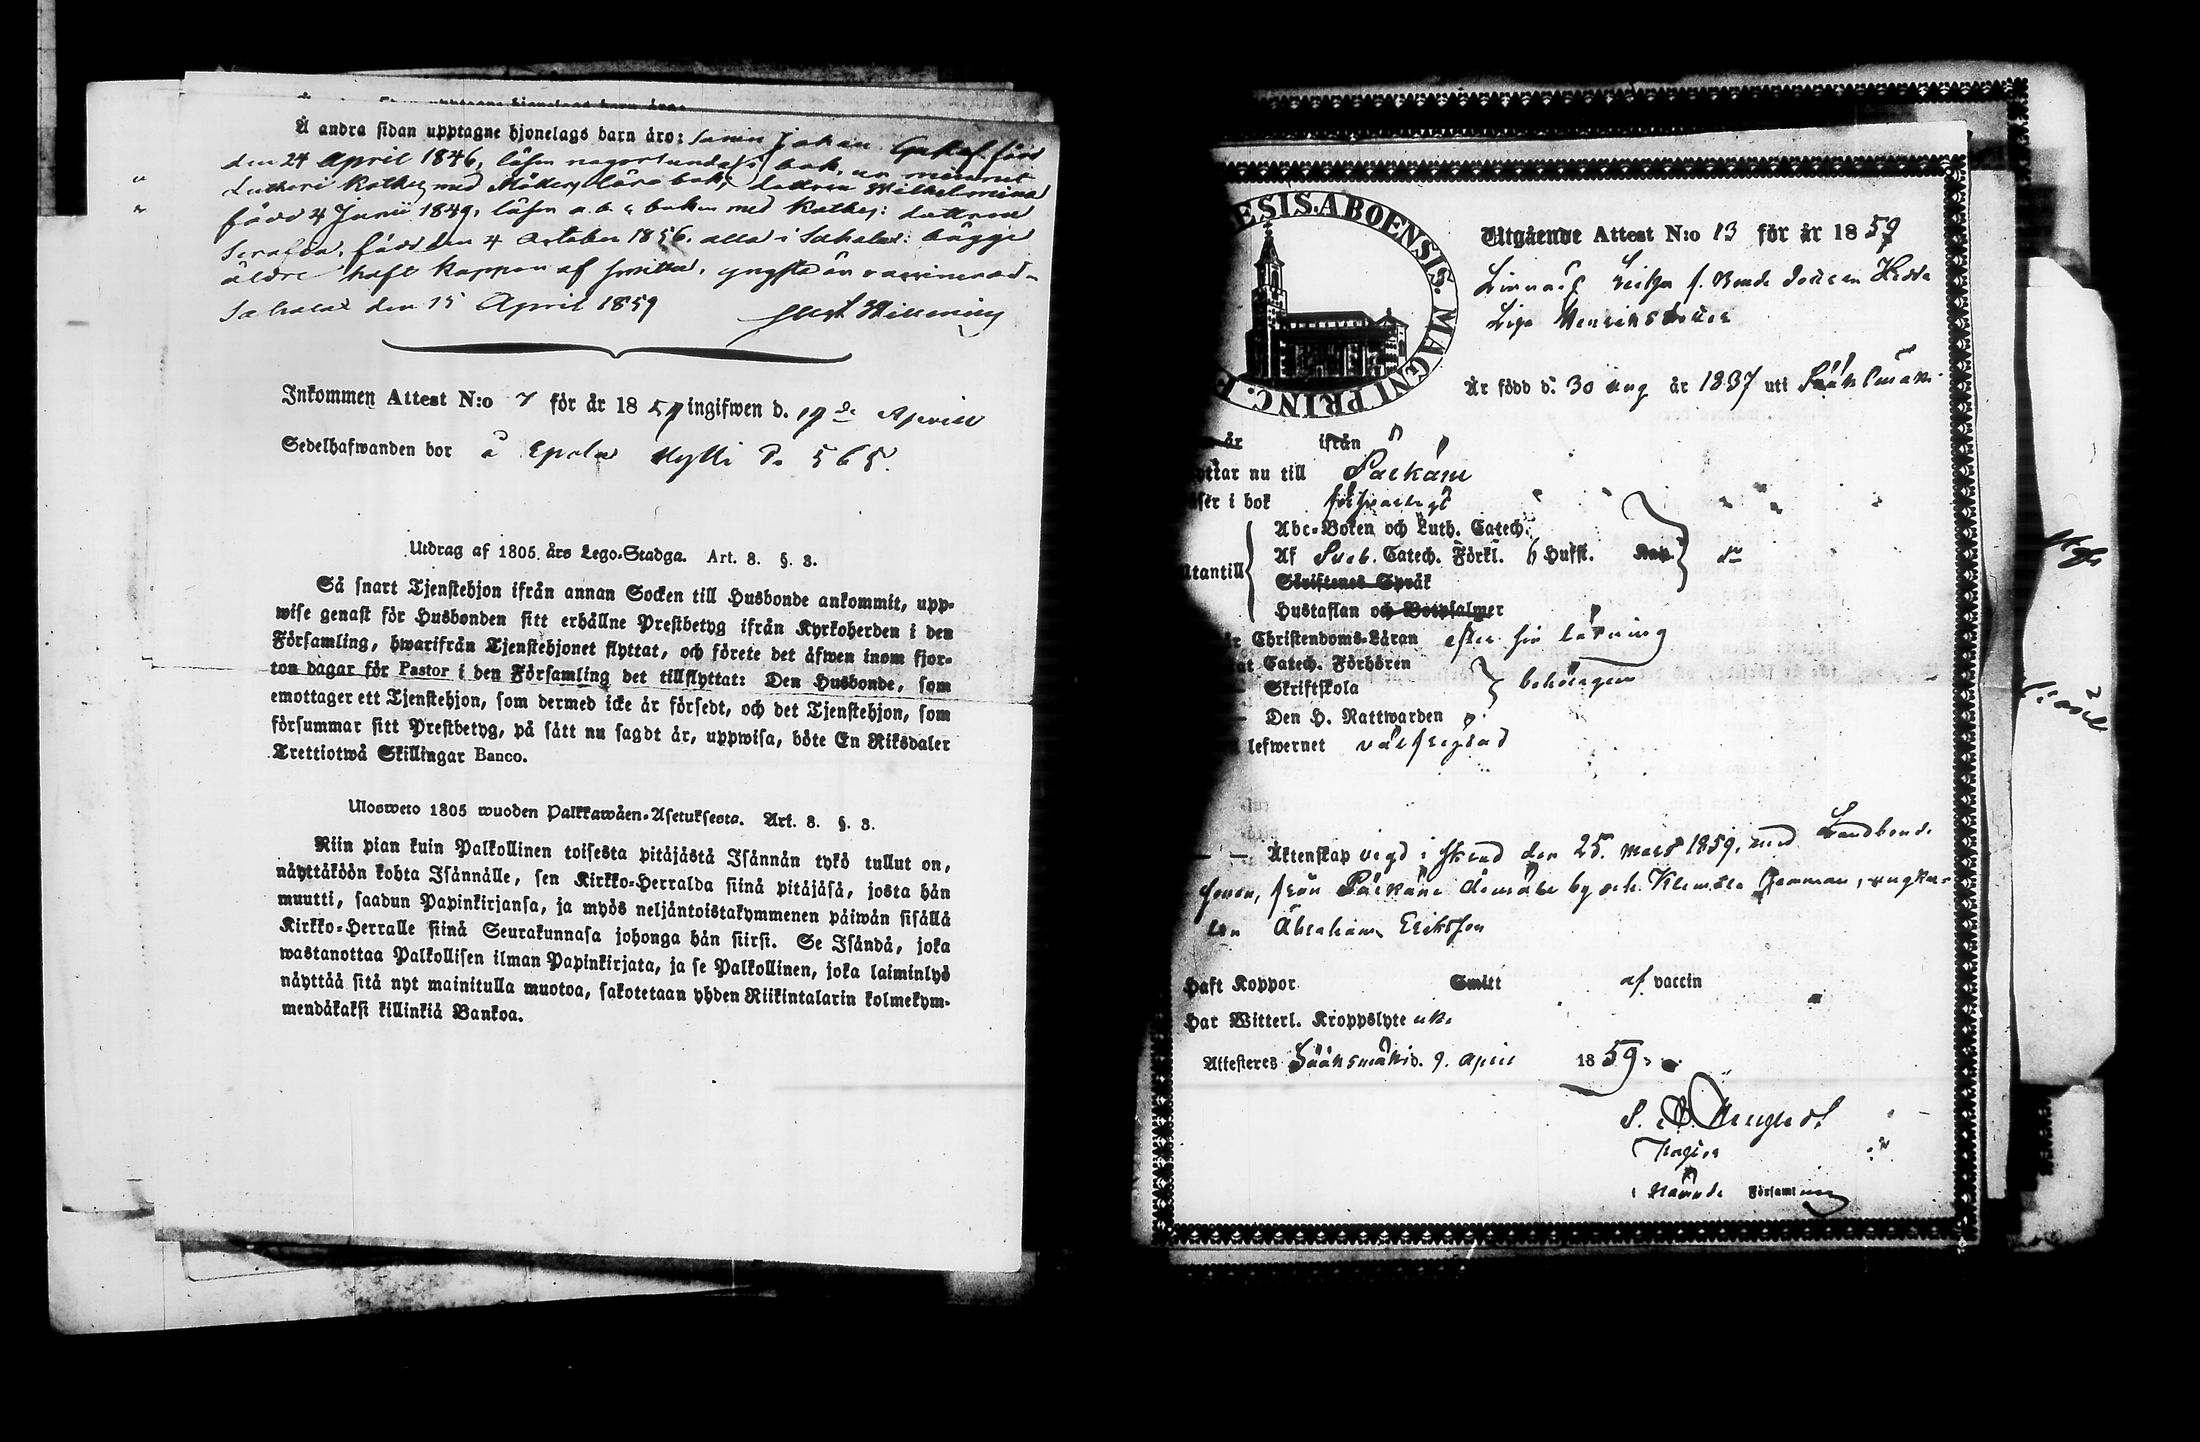 Å andra sidan upptagne hjonelags barn äro: sonen Johan Gustaf född
den 24 April 1846, läser någorlunda i bok, ur minnet
Lutheri Kathez med lärobok; dottren Wilhelmina
född 4 Junii 1849, läser a.b.c boken med Kathez: dottren
Serafia, född den 4 October 1856. alla i Sahalax: bägge
äldre haft koppor af smitta, yngsta än vaccinerad.
Sahalax den 15 April 1859
Inkommen Attest N:o 7 för år 1859 ingifwen d. 19de April
Sedelhafwanden bor å Epola Mylli P. 565.
Utdrag af 1805 års Lego-Stadga. Art. 8. §. 3.
Så snart Tjenstehjon ifrån annan Socken till Husbonde ankommit, upp-
wise genast för Husbonden sitt erhållne Prestbetyg ifrån Kyrkoherden i den
Församling, hwarifrån Tjenstehjonet flyttat, och förete det äfwen inom fjor-
ton dagar för Pastor i den Församling det tillflyttat: Den Husbonde, som
emottager ett Tjenstehjon, som dermed icke är försedt, och det Tjenstehjon, som
försummar sitt Prestbetyg, på sätt nu sagdt är, uppwisa, böte En Riksdaler
Trettiotwå Skillingar Banco.
Ulosweto 1805 wuoden Palkkawäen-Asetuksesta. Art. 8. §. 3.
Niin pian kuin Palkollinen toisesta pitäjästä Isännän tykö tullut on,
näyttäköön kohta Isännälle, sen Kirkko-Herralda siinä pitäjäsä, josta hän
muutti, saadun Papinkirjansa, ja myös neljäntoistakymmenen päiwän sisällä
Kirkko-Herralle siinä Seurakunnasa johonga hän siirsi. Se Isändä, joka
wastanottaa Palkollisen ilman Papinkirjata, ja se Palkollinen, joka laiminlyö
näyttää sitä nyt mainitulla muotoa, sakotetaan yhden Riikintalarin kolmekym-
mendäkaksi killinkiä Bankoa.
ESIS. ABOENSIS. MAGNI PRINC. F
Utgående Attest N:o 13 för år 1859
Linnais f. Bonde dottren Hedda
Lisa Henriksdotter
Är född d. 30 aug år 1837 uti Sääksmäki
är ifrån
yttar nu till Pälkäne
äser i bok försvarligt
Abc-Boken och Luth. Catech.
Utantill Af Sveb. Catech. Förkl. 6 Hufst. Kap.
Skriftenes Språk
Hustaflan och Botpsalmer
Christendoms-Läran efter sin läsning
Catech. Förhören
Skriftskola behörigen
Den H. Nattwarden
lefwernet välfrejdad
Äktenskap vigd i Stånd den 25. Mars 1859, med Landbonde
sonen, från Pälkäne by och Klemola hemman, ungkar-
len Abraham Eriksson
Haft Koppor Smitt af vaccin
Har Witterl. Kroppslyte icke
Attesteres Sääksmäki d. 9. April 1859.
i Nämnde Församling